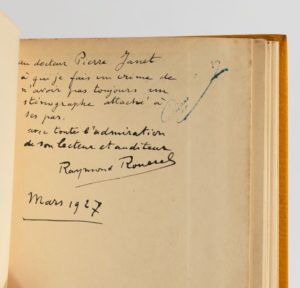 au docteur Pierre Janet
à qui je fais un crime de
n'avoir pas toujours un
sténographe attaché à
ses pas.
avec toute l'admiration
de son lecteur et auditeur
Raymond Roussel
Mars 1927